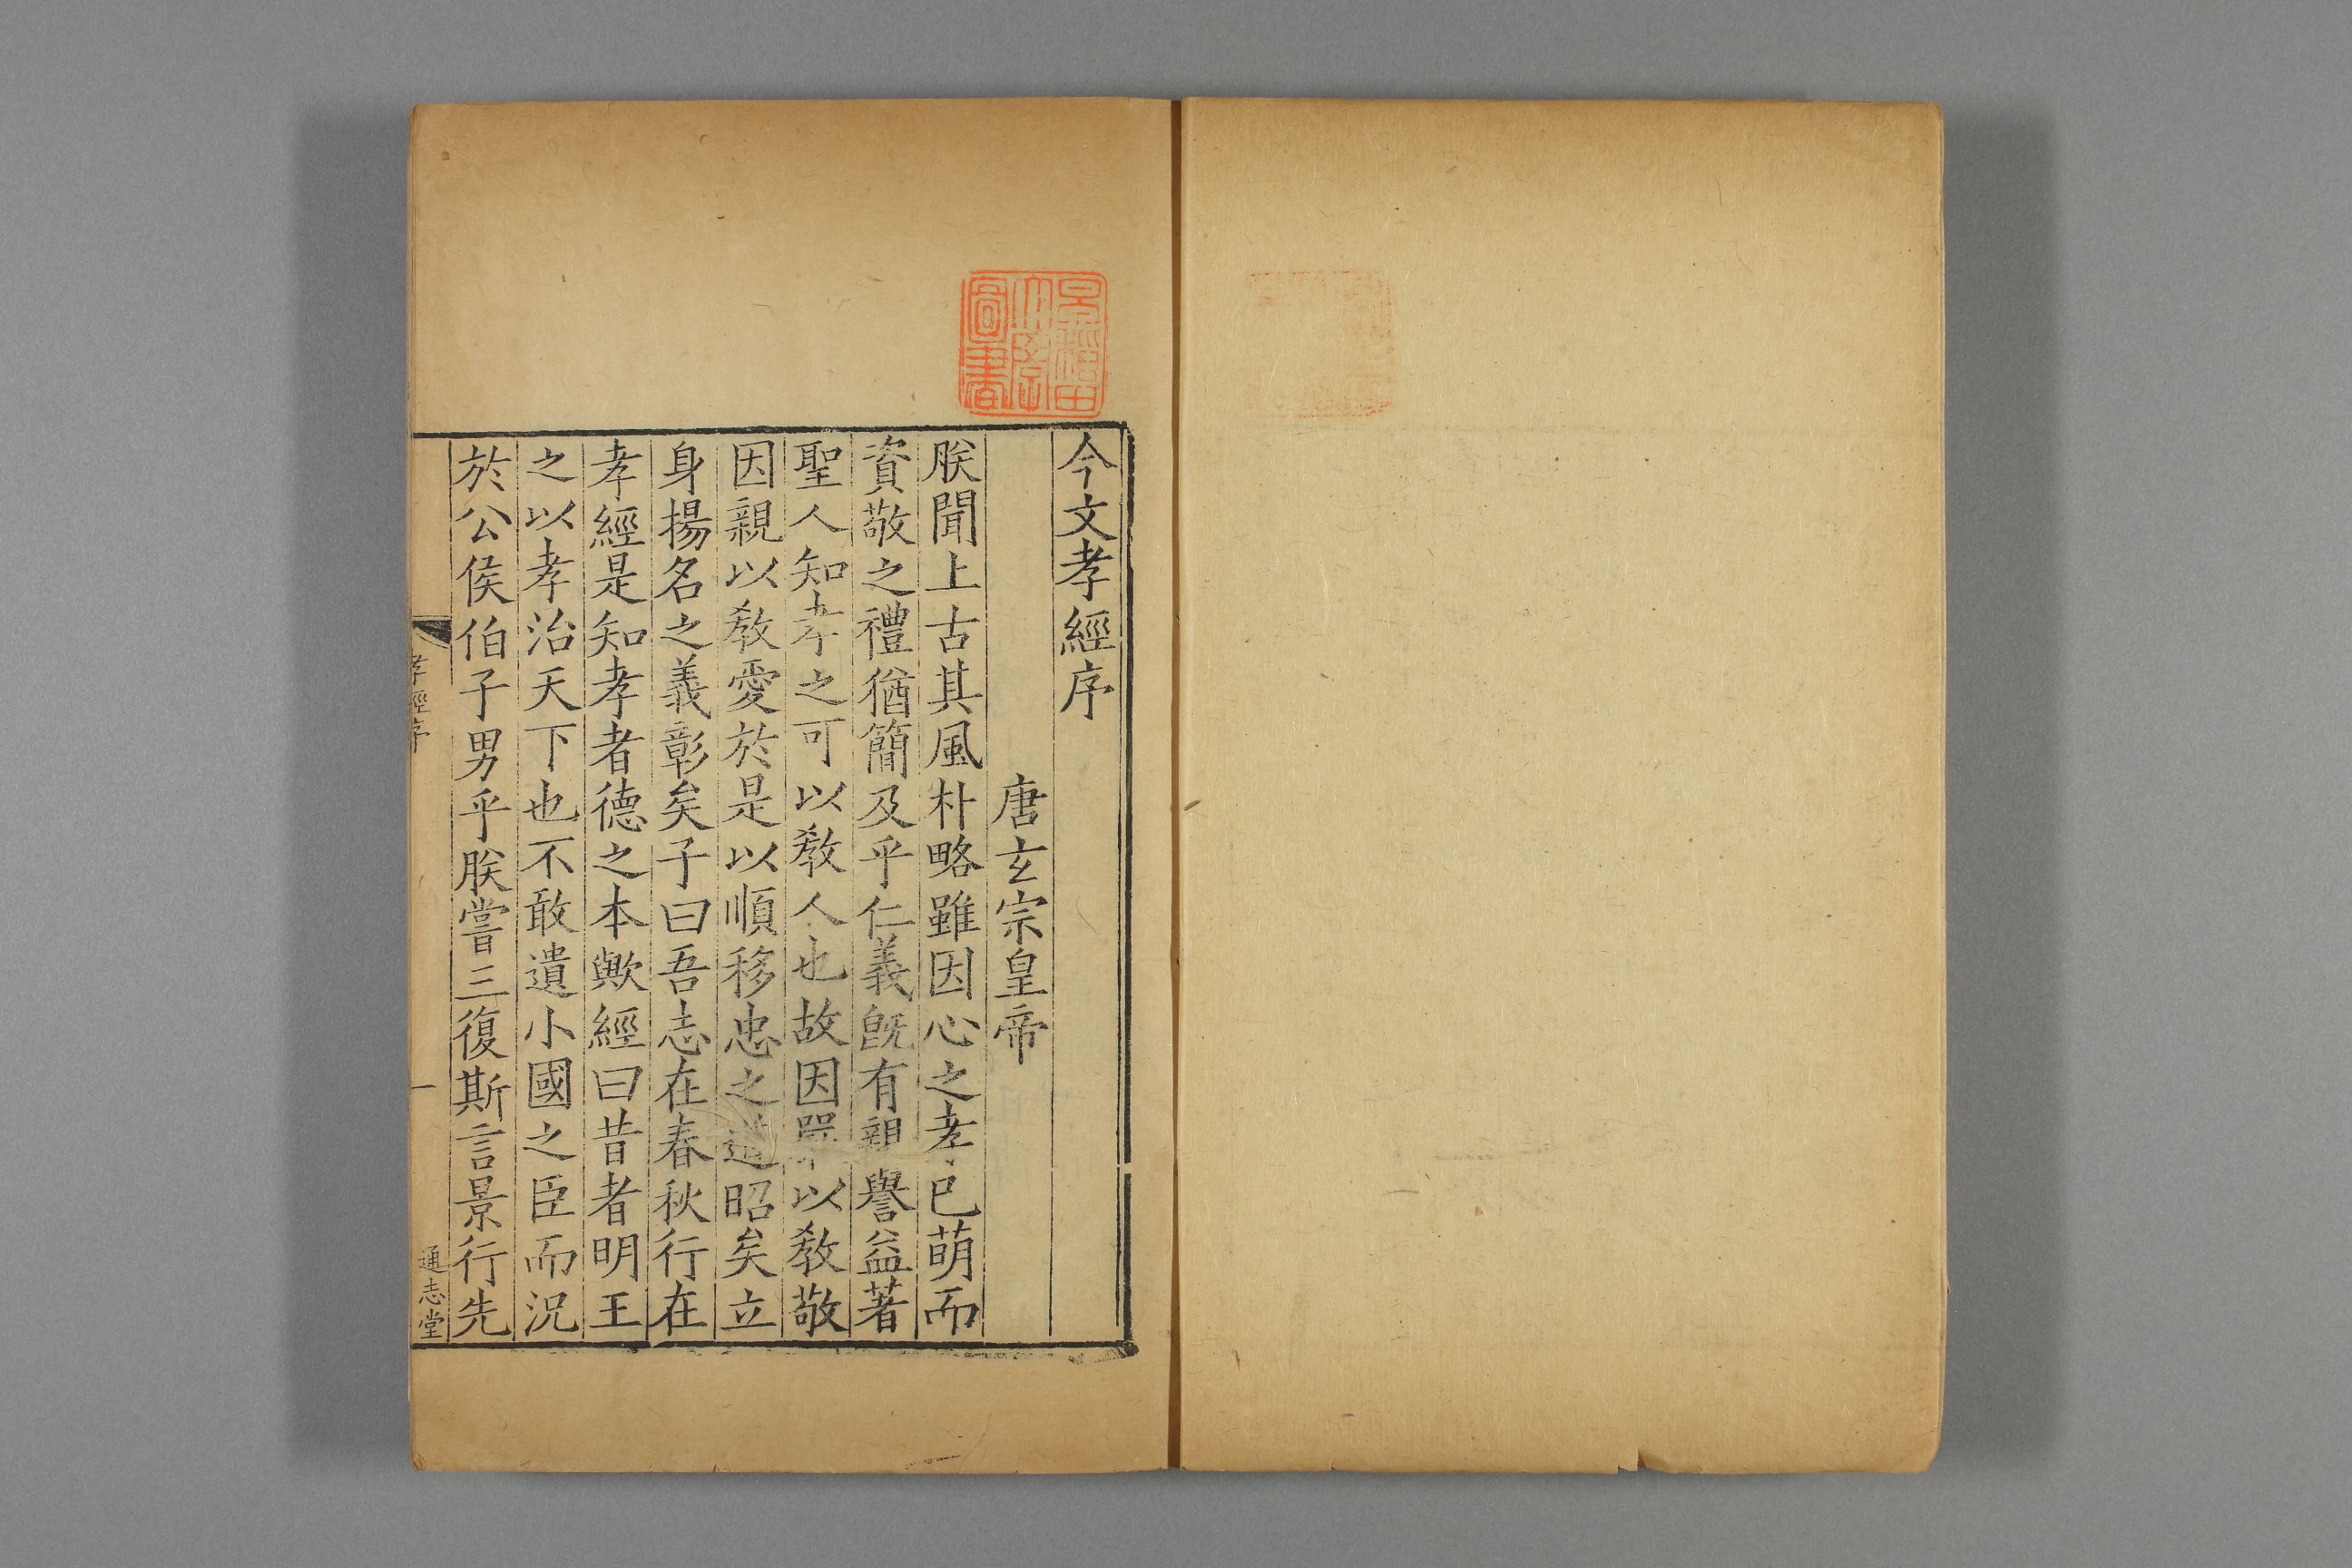 今文孝經序
唐玄宗皇帝
朕聞上古其風朴略雖因心之孝已萌而
資敬之禮猶簡及乎仁義旣有親譽益著
聖人知孝之可以敎人也故因嚴以敎敬
因親以敎愛於是以順移忠之道昭矣立
身揚名之義彰矣子曰吾志在春秋行在
孝經是知孝者德之本歟經曰昔者明王
之以孝治天下也不敢遺小國之臣而況
於公侯伯子男乎朕嘗三復斯言景行先
孝經序
一
通志堂
早稻田大學圖書